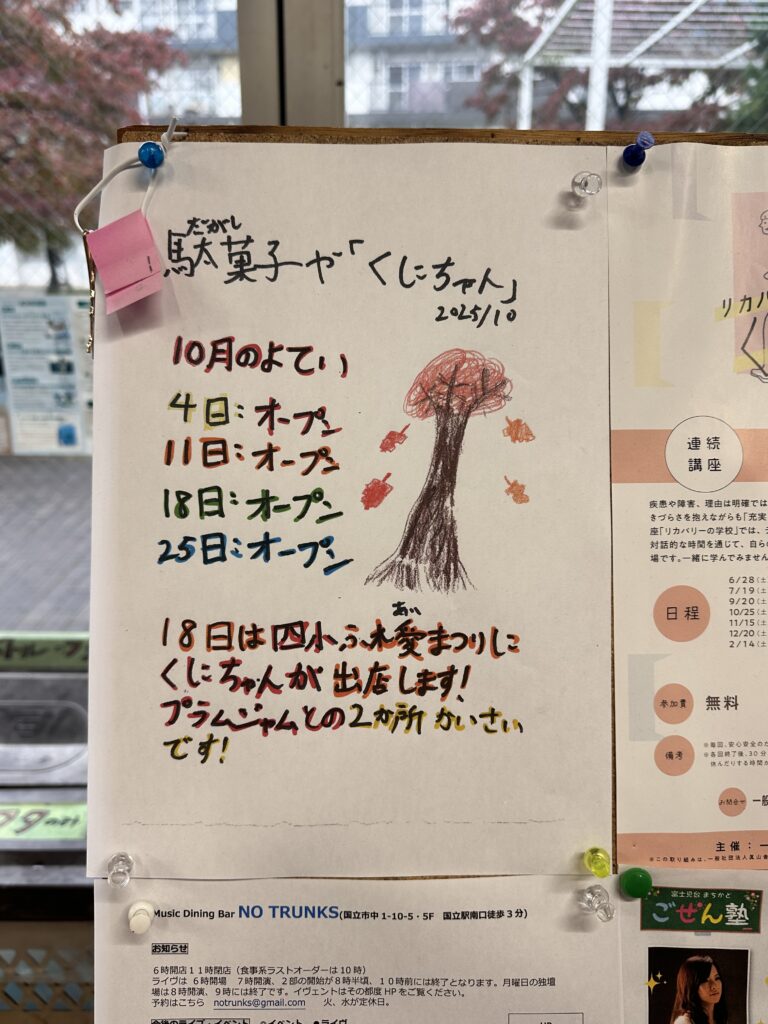 だがし
駄菓子や「くにちゃん」
2025/10
10月のよてい
4日:オープン
11日:オープン
18日:オープン
25日:オープン
あい
18日は四小ふれ愛まつりに
くにちゃんが出店します!
プラムジャムとの2か所かいさい
です!
Music Dining Bar NO TRUNKS(国立市中1-10-5・5F 国立駅南口徒歩3分)
お知らせ
6時開店11時閉店(食事系ラストオーダーは10時)
ライヴは6時開場 7時開演、2部の開始が8時半頃、10時前には終了となります。月曜日の独壇
場は8時開演、9時には終了です。イヴェントはその都度HPをご覧ください。
予約はこちら notrunks@gmail.com 火、水が定休日。
リカバ
連続
講座
疾患や障害、理由は明確では
きづらさを抱えながらも「充実
座「リカバリーの学校」では、
対話的な時間を通じて、自らの
場です。一緒に学んでみません
日程
6/28(土
7/19(土
9/20(土
10/25(土
11/15(土
12/20(土
2/14(土
参加費 無料
備考
※毎回、安心安全のた
※各回終了後、30分
休んだりする時間が
お問合せ 一般
主催:一
※この取り組みは、一般社団法人眞山舎
富士見台 まちかど
ごぜん塾